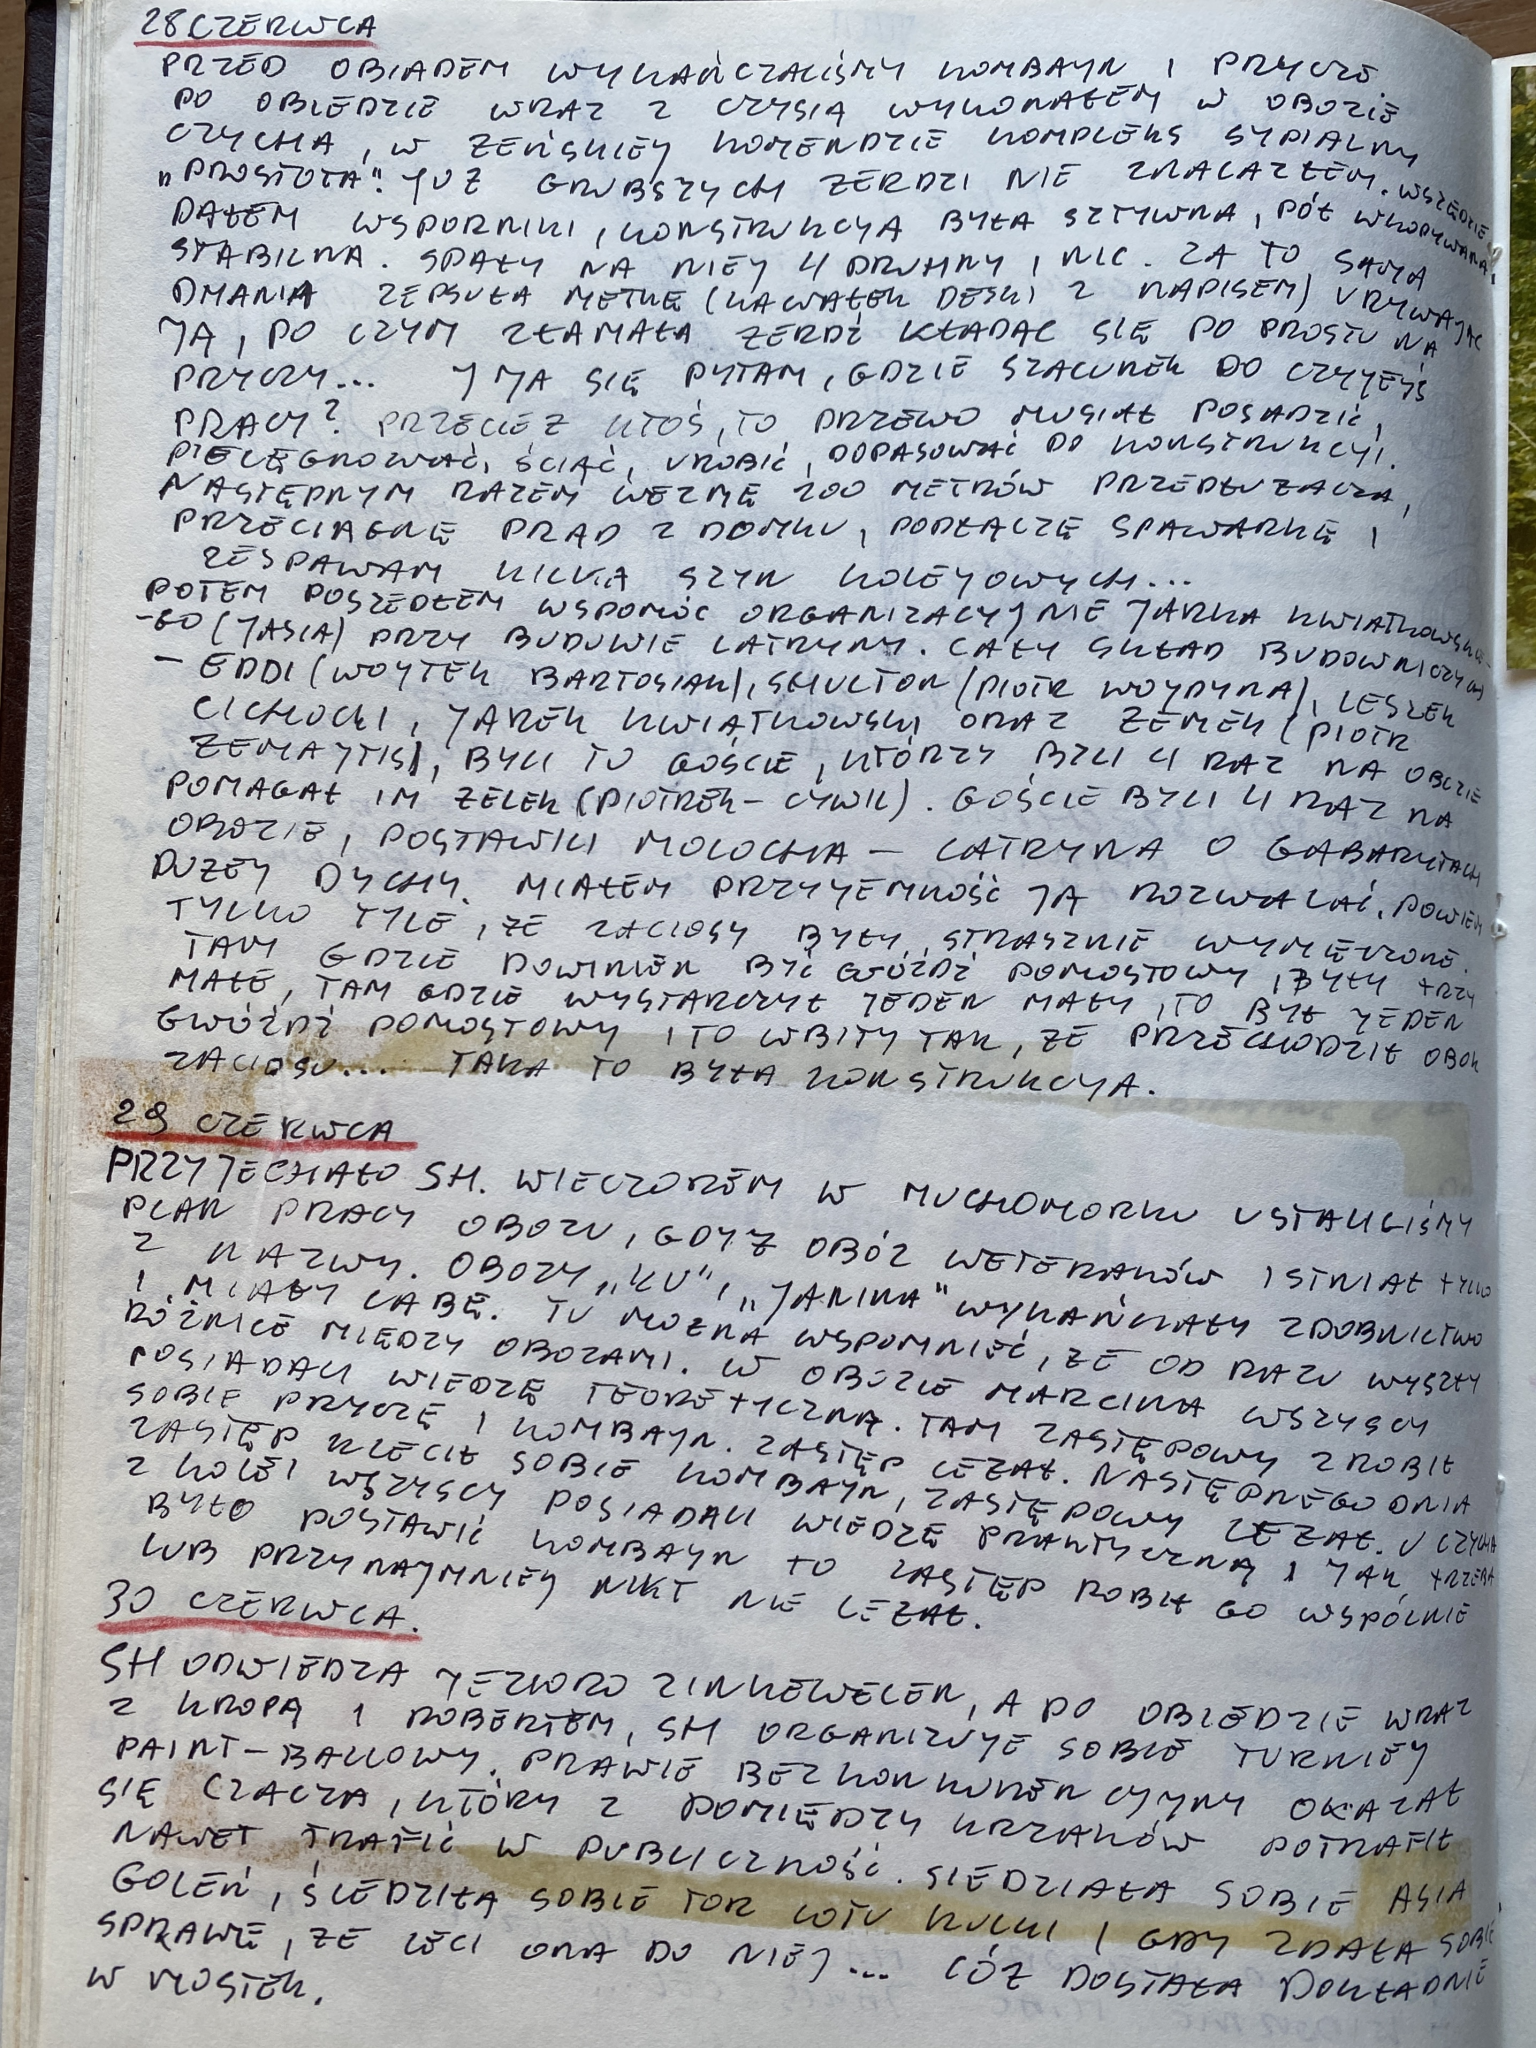 28 CZERWCA
PRZED OBIADEM WYKAŃCZALIŚMY KOMBAYN I PRYCZE
PO OBIEDZIE WRAZ Z CZYSIĄ WYKONAŁEM W OBOZIE
CZYCHA, W ŻEŃSKIEY KOMENDZIE KOMPLEKS SYPIALNY
"PROSTOTA". YUŻ GRUBSZYCH ŻERDZI NIE ZNALAZŁEM. WSZĘDZIE
DAŁEM WSPORNIKI, KONSTRUKCYA BYŁA SZTYWNA, PÓŁ WKOPYWANA,
STABILNA. SPAŁY NA NIEY 4 DRUHNY I NIC. ZA TO SAMA
DMANIA ZEPSUŁA METKĘ (KAWAŁEK DESKI Z NAPISEM) URYWAYĄC
YĄ, PO CZYM ZŁAMAŁA ŻERDŹ KŁADĄC SIĘ PO PROSTU NA
PRYCZY... Y YA SIĘ PYTAM, GDZIE SZACUNEK DO CZYYEYŚ
PRACY? PRZECIEŻ KTOŚ TO DRZEWO MUSIAŁ POSADZIĆ,
PIELĘGNOWAĆ, ŚCIĄĆ, UROBIĆ, DOPASOWAĆ DO KONSTRUKCYI.
NASTĘPNYM RAZEM WEZMĘ 200 METRÓW PRZEDŁUŻACZA,
PRZECIĄGNĘ PRĄD Z DOMKU, PODŁĄCZĘ SPAWARKĘ I
ZESPAWAM KILKA SZYN KOLEYOWYCH...
POTEM POSZEDŁEM WSPOMÓC ORGANIZACYJNIE JARKA KWIATKOWSKIE-
-GO (YASIA) PRZY BUDOWIE LATRYNY. CAŁY SKŁAD BUDOWNICZYCH
- EDDI (WOYTEK BARTOSIAK), SKULTON (PIOTR WOYDYNA), LESZEK
CICHOCKI, YAREK KWIATKOWSKI ORAZ ZEMEK (PIOTR
ZEMAYTIS), BYLI TO GOŚCIE, KTÓRZY BYLI 4 RAZ NA OBOZIE
POMAGAŁ IM ZELEK (PIOTREK - CYWIL). GOŚCIE BYLI 4 RAZ NA
OBOZIE, POSTAWILI MOLOCHA - LATRYNA O GABARYTACH
DUŻEY DYCHY. MIAŁEM PRZYYEMNOŚĆ YĄ ROZWALAĆ. POWIEM
TYLKO TYLE, ŻE ZACIOSY BYŁY STRASZNIE WYMĘCZONE.
TAM GDZIE POWINIEN BYĆ GWÓŹDŹ POMOSTOWY, BYŁY TRZY
MAŁE, TAM GDZIE WYSTARCZYŁ YEDEN MAŁY, TO BYŁ YEDEN
GWÓŹDŹ POMOSTOWY I TO WBITY TAK, ŻE PRZECHODZIŁ OBOK
ZACIOSU... TAKA TO BYŁA KONSTRUKCYA.
29 CZERWCA
PRZYJECHAŁO SH. WIECZOREM W MUCHOMORKU USTALILIŚMY
PLAN PRACY OBOZU, GDYŻ OBÓZ WETERANÓW ISTNIAŁ TYLKO
Z NAZWY. OBOZY "KU", "YANINA" WYKAŃCZAŁY ZDOBNICTWO
I MIAŁY LABĘ. TU MOŻNA WSPOMNIEĆ, ŻE OD RAZU WYSZŁY
RÓŻNICE MIĘDZY OBOZAMI. W OBOZIE MARCINA WSZYSCY
POSIADALI WIEDZĘ TEORETYCZNĄ. TAM ZASTĘPOWY ZROBIŁ
SOBIE PRYCZĘ I KOMBAYN. ZASTĘP LEŻAŁ. NASTĘPNEGO DNIA
ZASTĘP KLECIŁ SOBIE KOMBAYN, ZASTĘPOWY LEŻAŁ. U CZYCHA
Z KOLEI WSZYSCY POSIADALI WIEDZĘ PRAKTYCZNĄ I YAK TRZEBA
BYŁO POSTAWIĆ KOMBAYN TO ZASTĘP ROBIŁ GO WSPÓLNIE
LUB PRZYNAJMNIEJ NIKT NIE LEŻAŁ.
30 CZERWCA.
SH ODWIEDZA YEZIORO ZINKEWELEN, A PO OBIEDZIE WRAZ
Z KROPĄ I ROBERTEM, SH ORGANIZUYE SOBIE TURNIEY
PAINT-BALLOWY. PRAWIE BEZKONKURENCYYNY OKAZAŁ
SIĘ CZACZA, KTÓRY Z POMIĘDZY KRZAKÓW POTRAFIŁ
NAWET TRAFIĆ W PUBLICZNOŚĆ. SIEDZIAŁA SOBIE ASIA
GOLEŃ, ŚLEDZIŁA SOBIE TOR LOTU KULKI I GDY ZDAŁA SOBIE
SPRAWĘ, ŻE LECI ONA DO NIEJ... CÓŻ DOSTAŁA DOKŁADNIE
W MOSTEK.